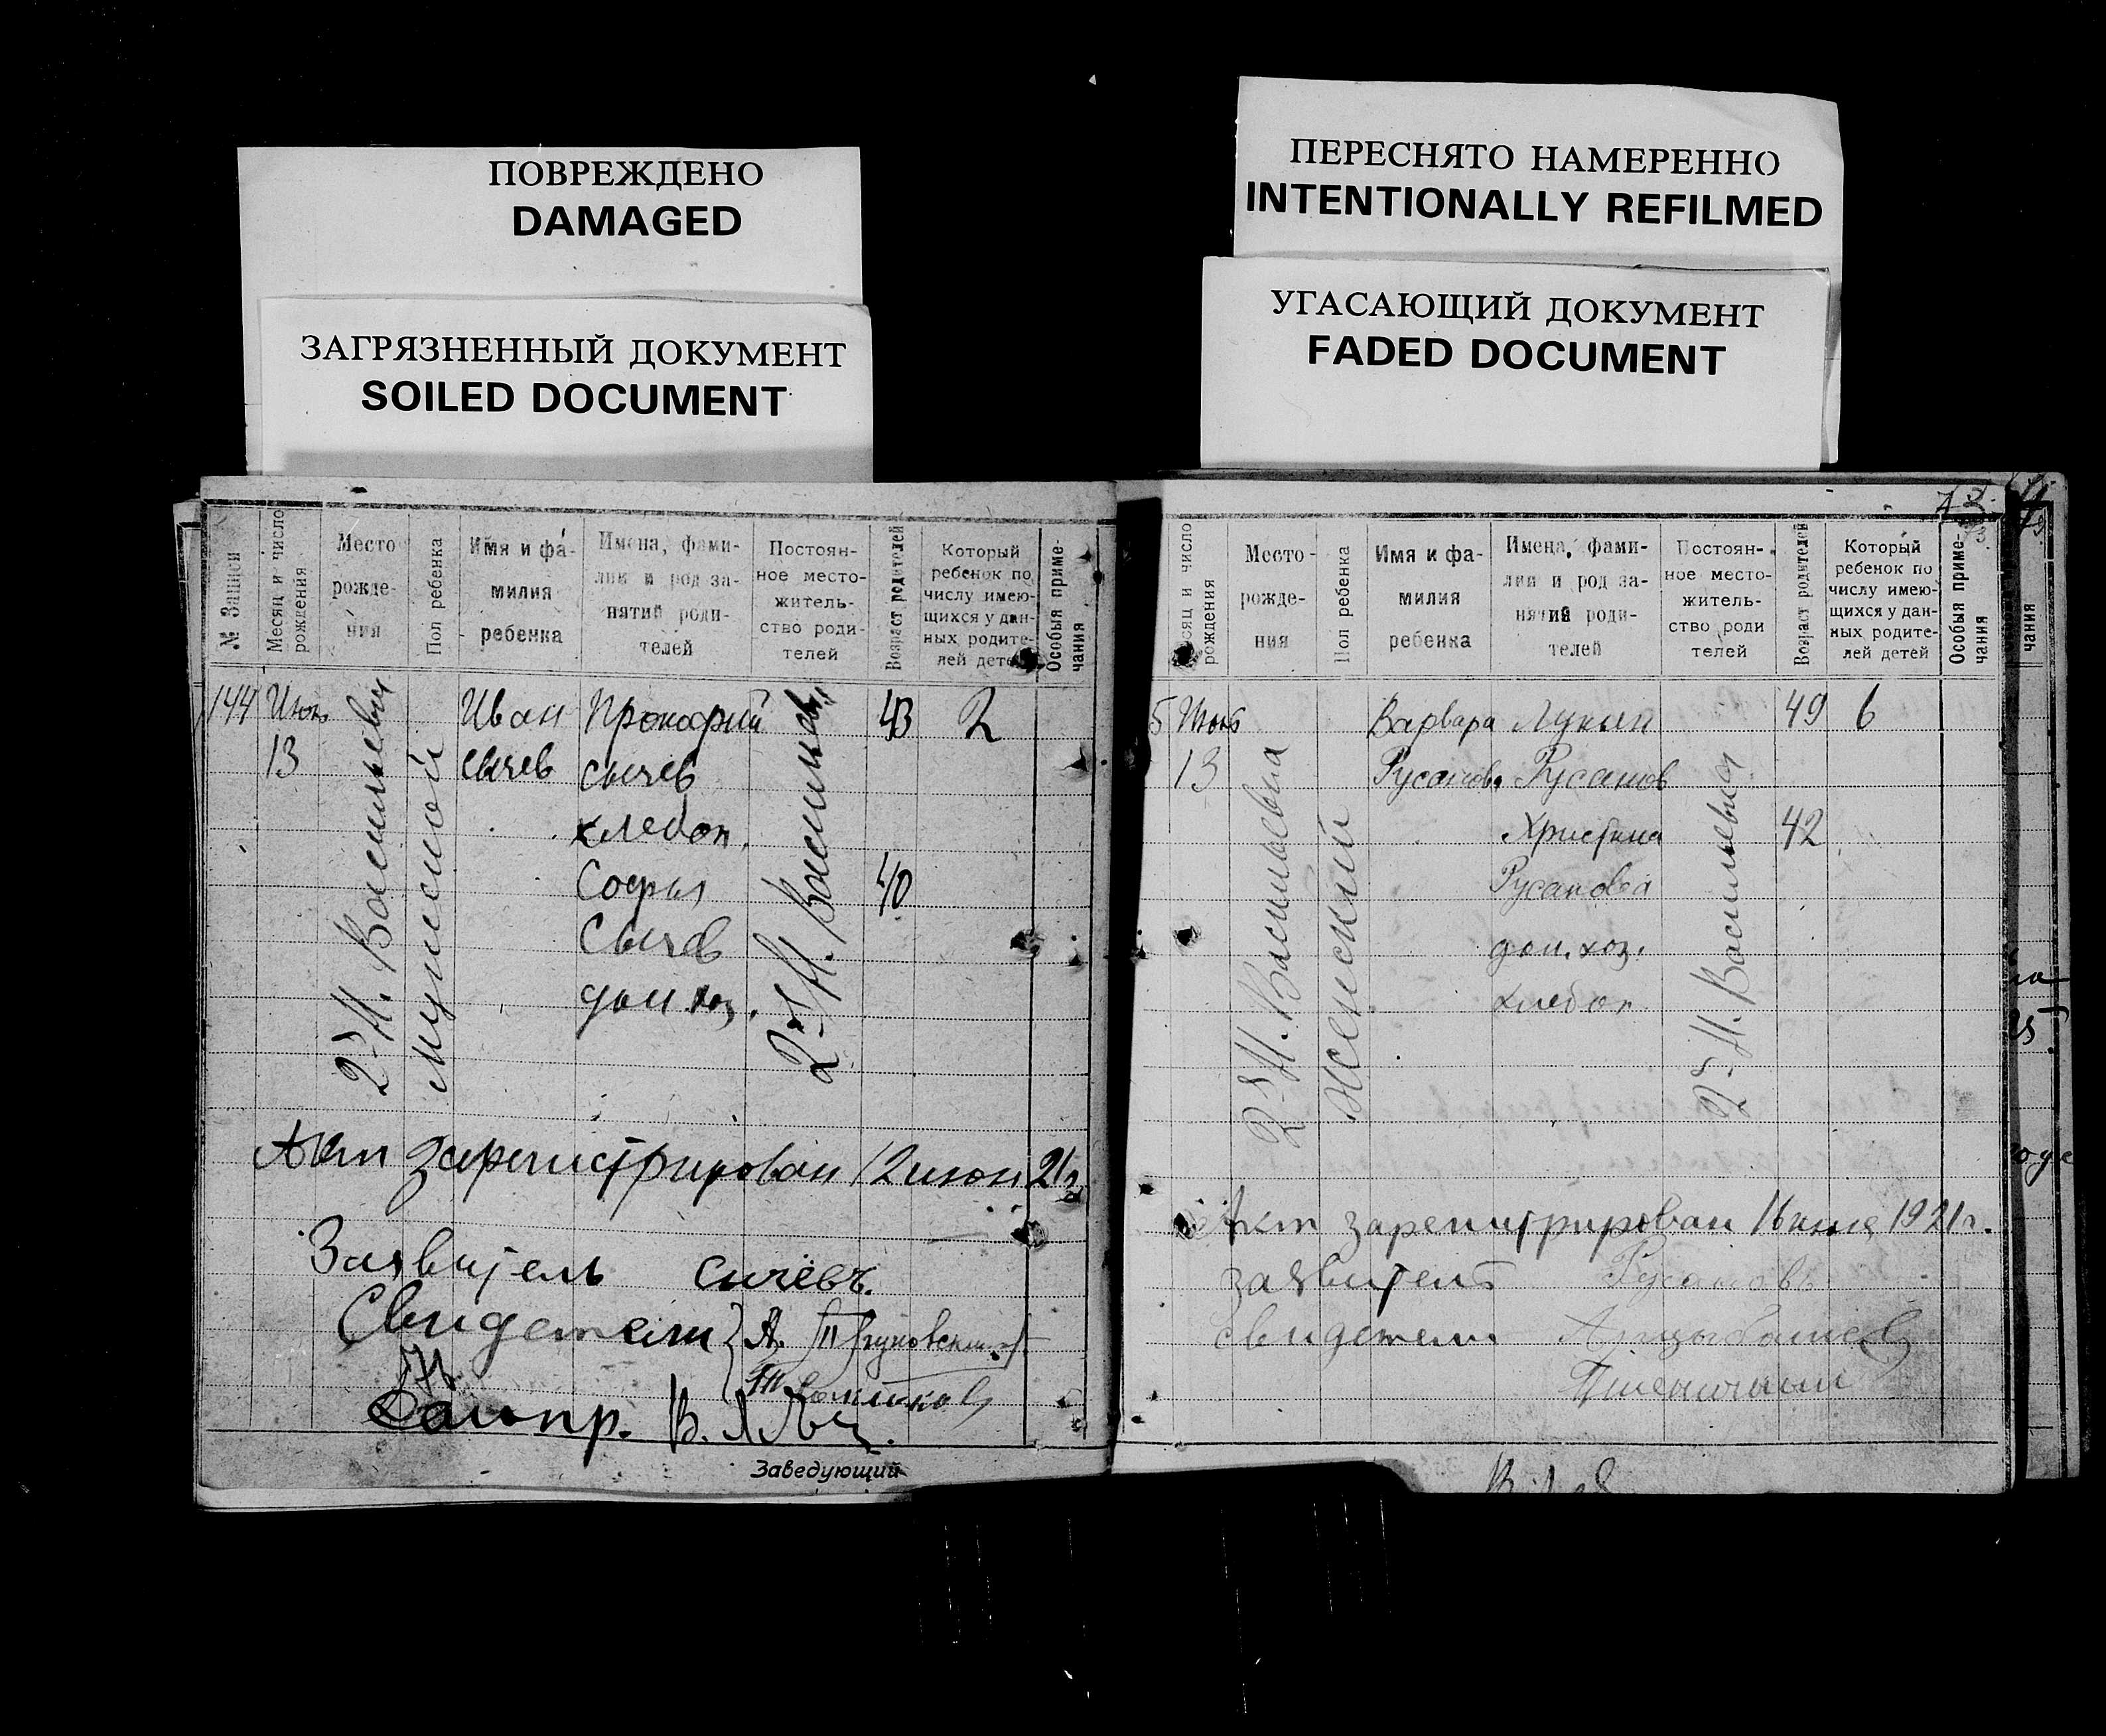 ПОВРЕЖДЕНО
DAMAGED
ЗАГРЯЗНЕННЫЙ ДОКУМЕНТ
SOILED DOCUMENT
ПЕРЕСНЯТО НАМЕРЕННО
INTENTIONALLY REFILMED
УГАСАЮЩИЙ ДОКУМЕНТ
FADED DOCUMENT
№ Записи
Месяц и число
рождения
Место
рожде-
ния
Пол ребенка
Имя и фа-
милия
ребенка
Имена, фами-
лии и род за-
нятий роди-
телей
Постоян-
ное место-
житель-
ство роди-
телей
Возраст родителей
Который
ребенок по
числу имею-
щихся у дан-
ных родите-
лей детей
Особыя приме-
чания
144 Июн
13
2-я Н. Васильевка
Мужской
Иван
Сычев
Прокофий
Сычев
хлебоп.
Софья
Сычев
дом хоз.
2-я Н. Васильевка
43
40
2
Акт зарегистрирован 12 июн 21 г
Заявитель Сычевъ.
Свидетели А.
Заведующий
73
есяц и число
рождения
Место-
рожде-
ния
Пол ребенка
Имя и фа-
милия
ребенка
Имена, фами-
лии и род за-
нятий роди-
телей
Постоян-
ное место-
житель-
ство роди
телей
Возраст родителей
Который
ребенок по
числу имею-
щихся у дан-
ных родите-
лей детей
Особыя приме-
чания
чания
5
13
2-я Н. Васильевка
Женский
Варвара
Русанова
Лукьян
Русанов
Христина
Русанова
дом. хоз.
хлебоп.
2-я Н. Васильевка
49
42
6
Акт зарегистрирован 16 июня 1921 г.
заявитель Русановъ
свидетели Арцыбашев
Пшеничный